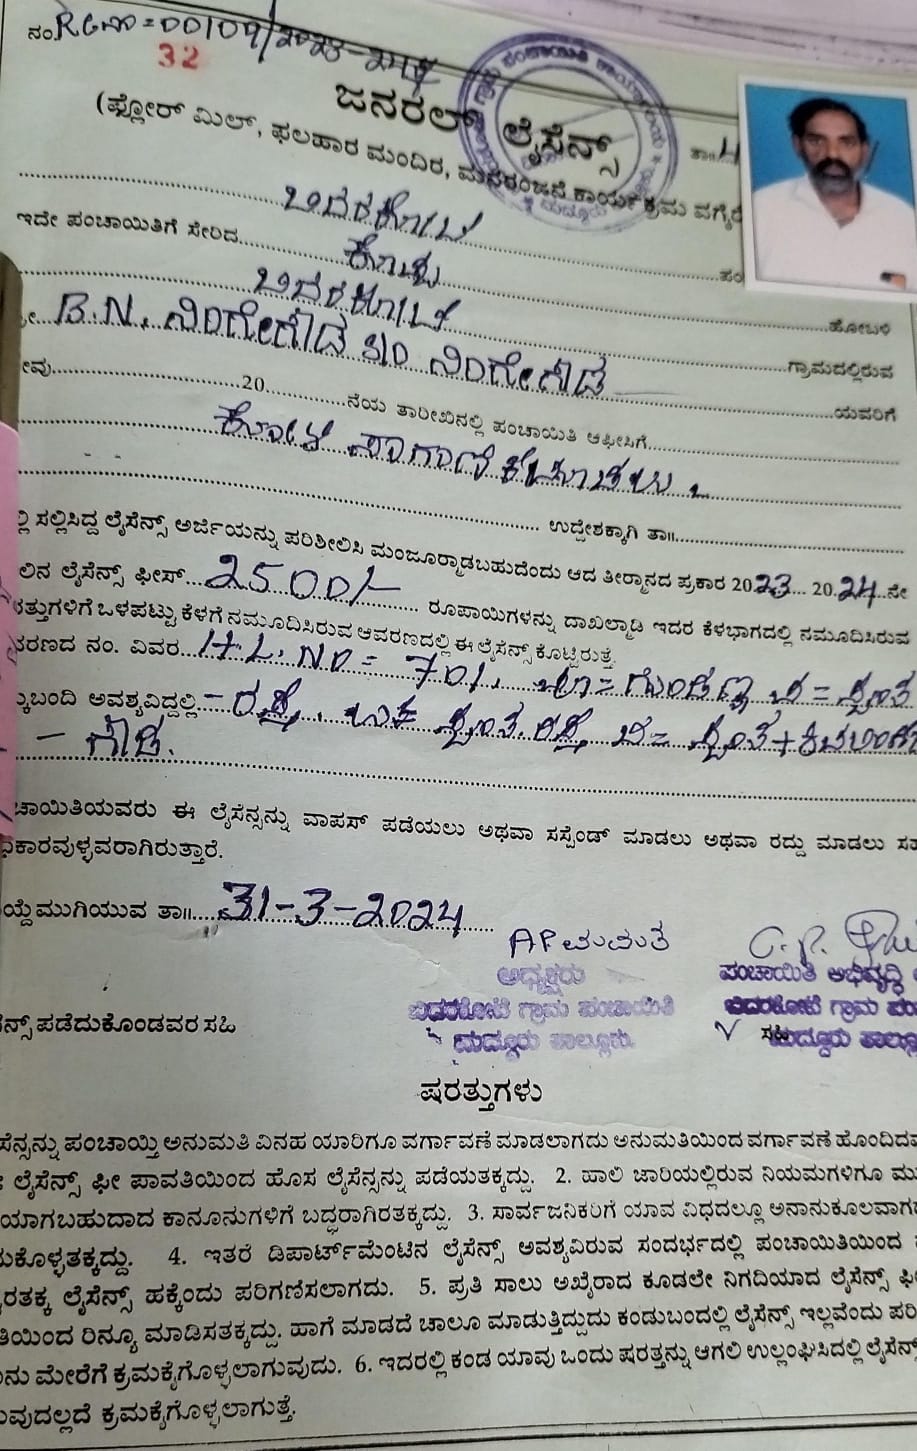 ನಂ.RGM=00109/2023-2024
32
ಜನರಲ್ ಲೈಸೆನ್ಸ್
ತಾ॥
(ಫ್ಲೋರ್ ಮಿಲ್, ಫಲಹಾರ ಮಂದಿರ, ಮನರಂಜನೆ ಕಾರ್ಯಕ್ರಮ ವಗೈರೆ
ಬಿದರಕೋಟೆ
ಇದೇ ಪಂಚಾಯಿತಿಗೆ ಸೇರಿದ ಕೊಪ್ಪ
ಬಿದರಕೋಟೆ ಹೋಬಳಿ
ಗ್ರಾಮದಲ್ಲಿರುವ
B.N. ನಿಂಗೇಗೌಡ S/o ನಿಂಗೇಗೌಡ
ಯವರಿಗೆ
20 ನೆಯ ತಾರೀಖಿನಲ್ಲಿ ಪಂಚಾಯಿತಿ ಆಫೀಸಿಗೆ
ಕೋಳಿ ಸಾಗಾಣಿಕೆ
ಉದ್ದೇಶಕ್ಕಾಗಿ ತಾ॥
ಸಲ್ಲಿಸಿದ್ದ ಲೈಸೆನ್ಸ್ ಅರ್ಜಿಯನ್ನು ಪರಿಶೀಲಿಸಿ ಮಂಜೂರ್ಮಾಡಬಹುದೆಂದು ಆದ ತೀರ್ಮಾನದ ಪ್ರಕಾರ 2023 2024 ನೇ
ಲಿನ ಲೈಸೆನ್ಸ್ ಫೀಸ್ 2500/- ರೂಪಾಯಿಗಳನ್ನು ದಾಖಲ್ಮಾಡಿ ಇದರ ಕೆಳಭಾಗದಲ್ಲಿ ನಮೂದಿಸಿರುವ
ರತ್ತುಗಳಿಗೆ ಒಳಪಟ್ಟು ಕೆಳಗೆ ನಮೂದಿಸಿರುವ ಆವರಣದಲ್ಲಿ ಈ ಲೈಸೆನ್ಸ್ ಕೊಟ್ಟಿರುತ್ತೆ
ವರಣದ ನಂ. ವಿವರ H.L. NO = 701.
ಕ್ಕುಬಂದಿ ಅವಶ್ಯವಿದ್ದಲ್ಲಿ - ರಸ್ತೆ.
- ಗೌಡ.
ಚಾಯಿತಿಯವರು ಈ ಲೈಸೆನ್ಸನ್ನು ವಾಪಸ್ ಪಡೆಯಲು ಅಥವಾ ಸಸ್ಪೆಂಡ್ ಮಾಡಲು ಅಥವಾ ರದ್ದು ಮಾಡಲು
ಧಿಕಾರವುಳ್ಳವರಾಗಿರುತ್ತಾರೆ.
ಯ್ದೆಮುಗಿಯುವ ತಾ॥ 31-3-2024
ಅಧ್ಯಕ್ಷರು
ಪಂಚಾಯಿತಿ ಅಭಿವೃದ್ಧಿ
ಬಿದರಕೋಟೆ ಗ್ರಾಮ ಪಂಚಾಯಿತಿ
ಬಿದರಕೋಟೆ ಗ್ರಾಮ
ನ್ಸ್ ಪಡೆದುಕೊಂಡವರ ಸಹಿ
ಮದ್ದೂರು ತಾಲ್ಲೂಕು
ಮದ್ದೂರು ತಾಲ್ಲೂ
ಷರತ್ತುಗಳು
ಸೆನ್ಸನ್ನು ಪಂಚಾಯ್ತಿ ಅನುಮತಿ ವಿನಹ ಯಾರಿಗೂ ವರ್ಗಾವಣೆ ಮಾಡಲಾಗದು ಅನುಮತಿಯಿಂದ ವರ್ಗಾವಣೆ ಹೊಂದಿದವ
ಲೈಸೆನ್ಸ್ ಫೀ ಪಾವತಿಯಿಂದ ಹೊಸ ಲೈಸೆನ್ಸನ್ನು ಪಡೆಯತಕ್ಕದ್ದು. 2. ಹಾಲಿ ಜಾರಿಯಲ್ಲಿರುವ ನಿಯಮಗಳಿಗೂ ಮು
ಯಾಗಬಹುದಾದ ಕಾನೂನುಗಳಿಗೆ ಬದ್ಧರಾಗಿರತಕ್ಕದ್ದು. 3. ಸಾರ್ವಜನಿಕರಿಗೆ ಯಾವ ವಿಧದಲ್ಲೂ ಅನಾನುಕೂಲವಾಗದ
ದುಕೊಳ್ಳತಕ್ಕದ್ದು. 4. ಇತರೆ ಡಿಪಾರ್ಟ್‌ಮೆಂಟಿನ ಲೈಸೆನ್ಸ್ ಅವಶ್ಯವಿರುವ ಸಂದರ್ಭದಲ್ಲಿ ಪಂಚಾಯಿತಿಯಿಂದ
ರತಕ್ಕ ಲೈಸೆನ್ಸ್ ಹಕ್ಕೆಂದು ಪರಿಗಣಿಸಲಾಗದು. 5. ಪ್ರತಿ ಸಾಲು ಅಖೈರಾದ ಕೂಡಲೇ ನಿಗದಿಯಾದ ಲೈಸೆನ್ಸ್ ಫೀ
ತಿಯಿಂದ ರಿನ್ಯೂ ಮಾಡಿಸತಕ್ಕದ್ದು. ಹಾಗೆ ಮಾಡದೆ ಚಾಲೂ ಮಾಡುತ್ತಿದ್ದುದು ಕಂಡುಬಂದಲ್ಲಿ ಲೈಸೆನ್ಸ್ ಇಲ್ಲವೆಂದು ಪರಿ
ನು ಮೇರೆಗೆ ಕ್ರಮಕೈಗೊಳ್ಳಲಾಗುವುದು. 6. ಇದರಲ್ಲಿ ಕಂಡ ಯಾವು ಒಂದು ಷರತ್ತನ್ನು ಆಗಲಿ ಉಲ್ಲಂಘಿಸಿದಲ್ಲಿ ಲೈಸೆನ್ಸ್
ುವುದಲ್ಲದೆ ಕ್ರಮಕೈಗೊಳ್ಳಲಾಗುತ್ತೆ.